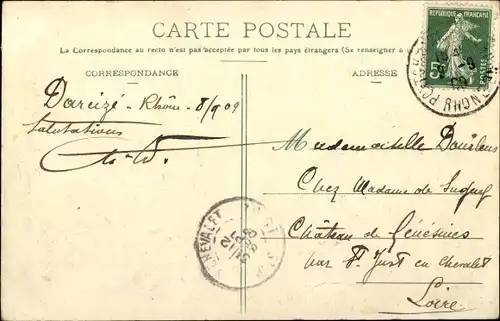 CARTE POSTALE
La Correspondance au recto n'est pas acceptée par tous les pays étrangers (Se renseigner à
CORRESPONDANCE
ADRESSE
REPUBLIQUE FRANÇAISE
5c
POSTES
Dareizé - Rhône - 8/9 09
Salutations
Mademoiselle
Chez Madame de
Château de Génésines
par St Just en Chevalet
Loire
CHEVALET